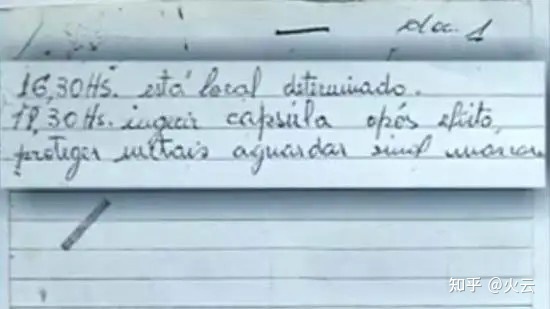 doc. 1
16,30 Hs. está local determinado.
18,30 Hs. ingerir capsúla após efeito,
proteger metais aguardar sinal mascara
知乎 @火云